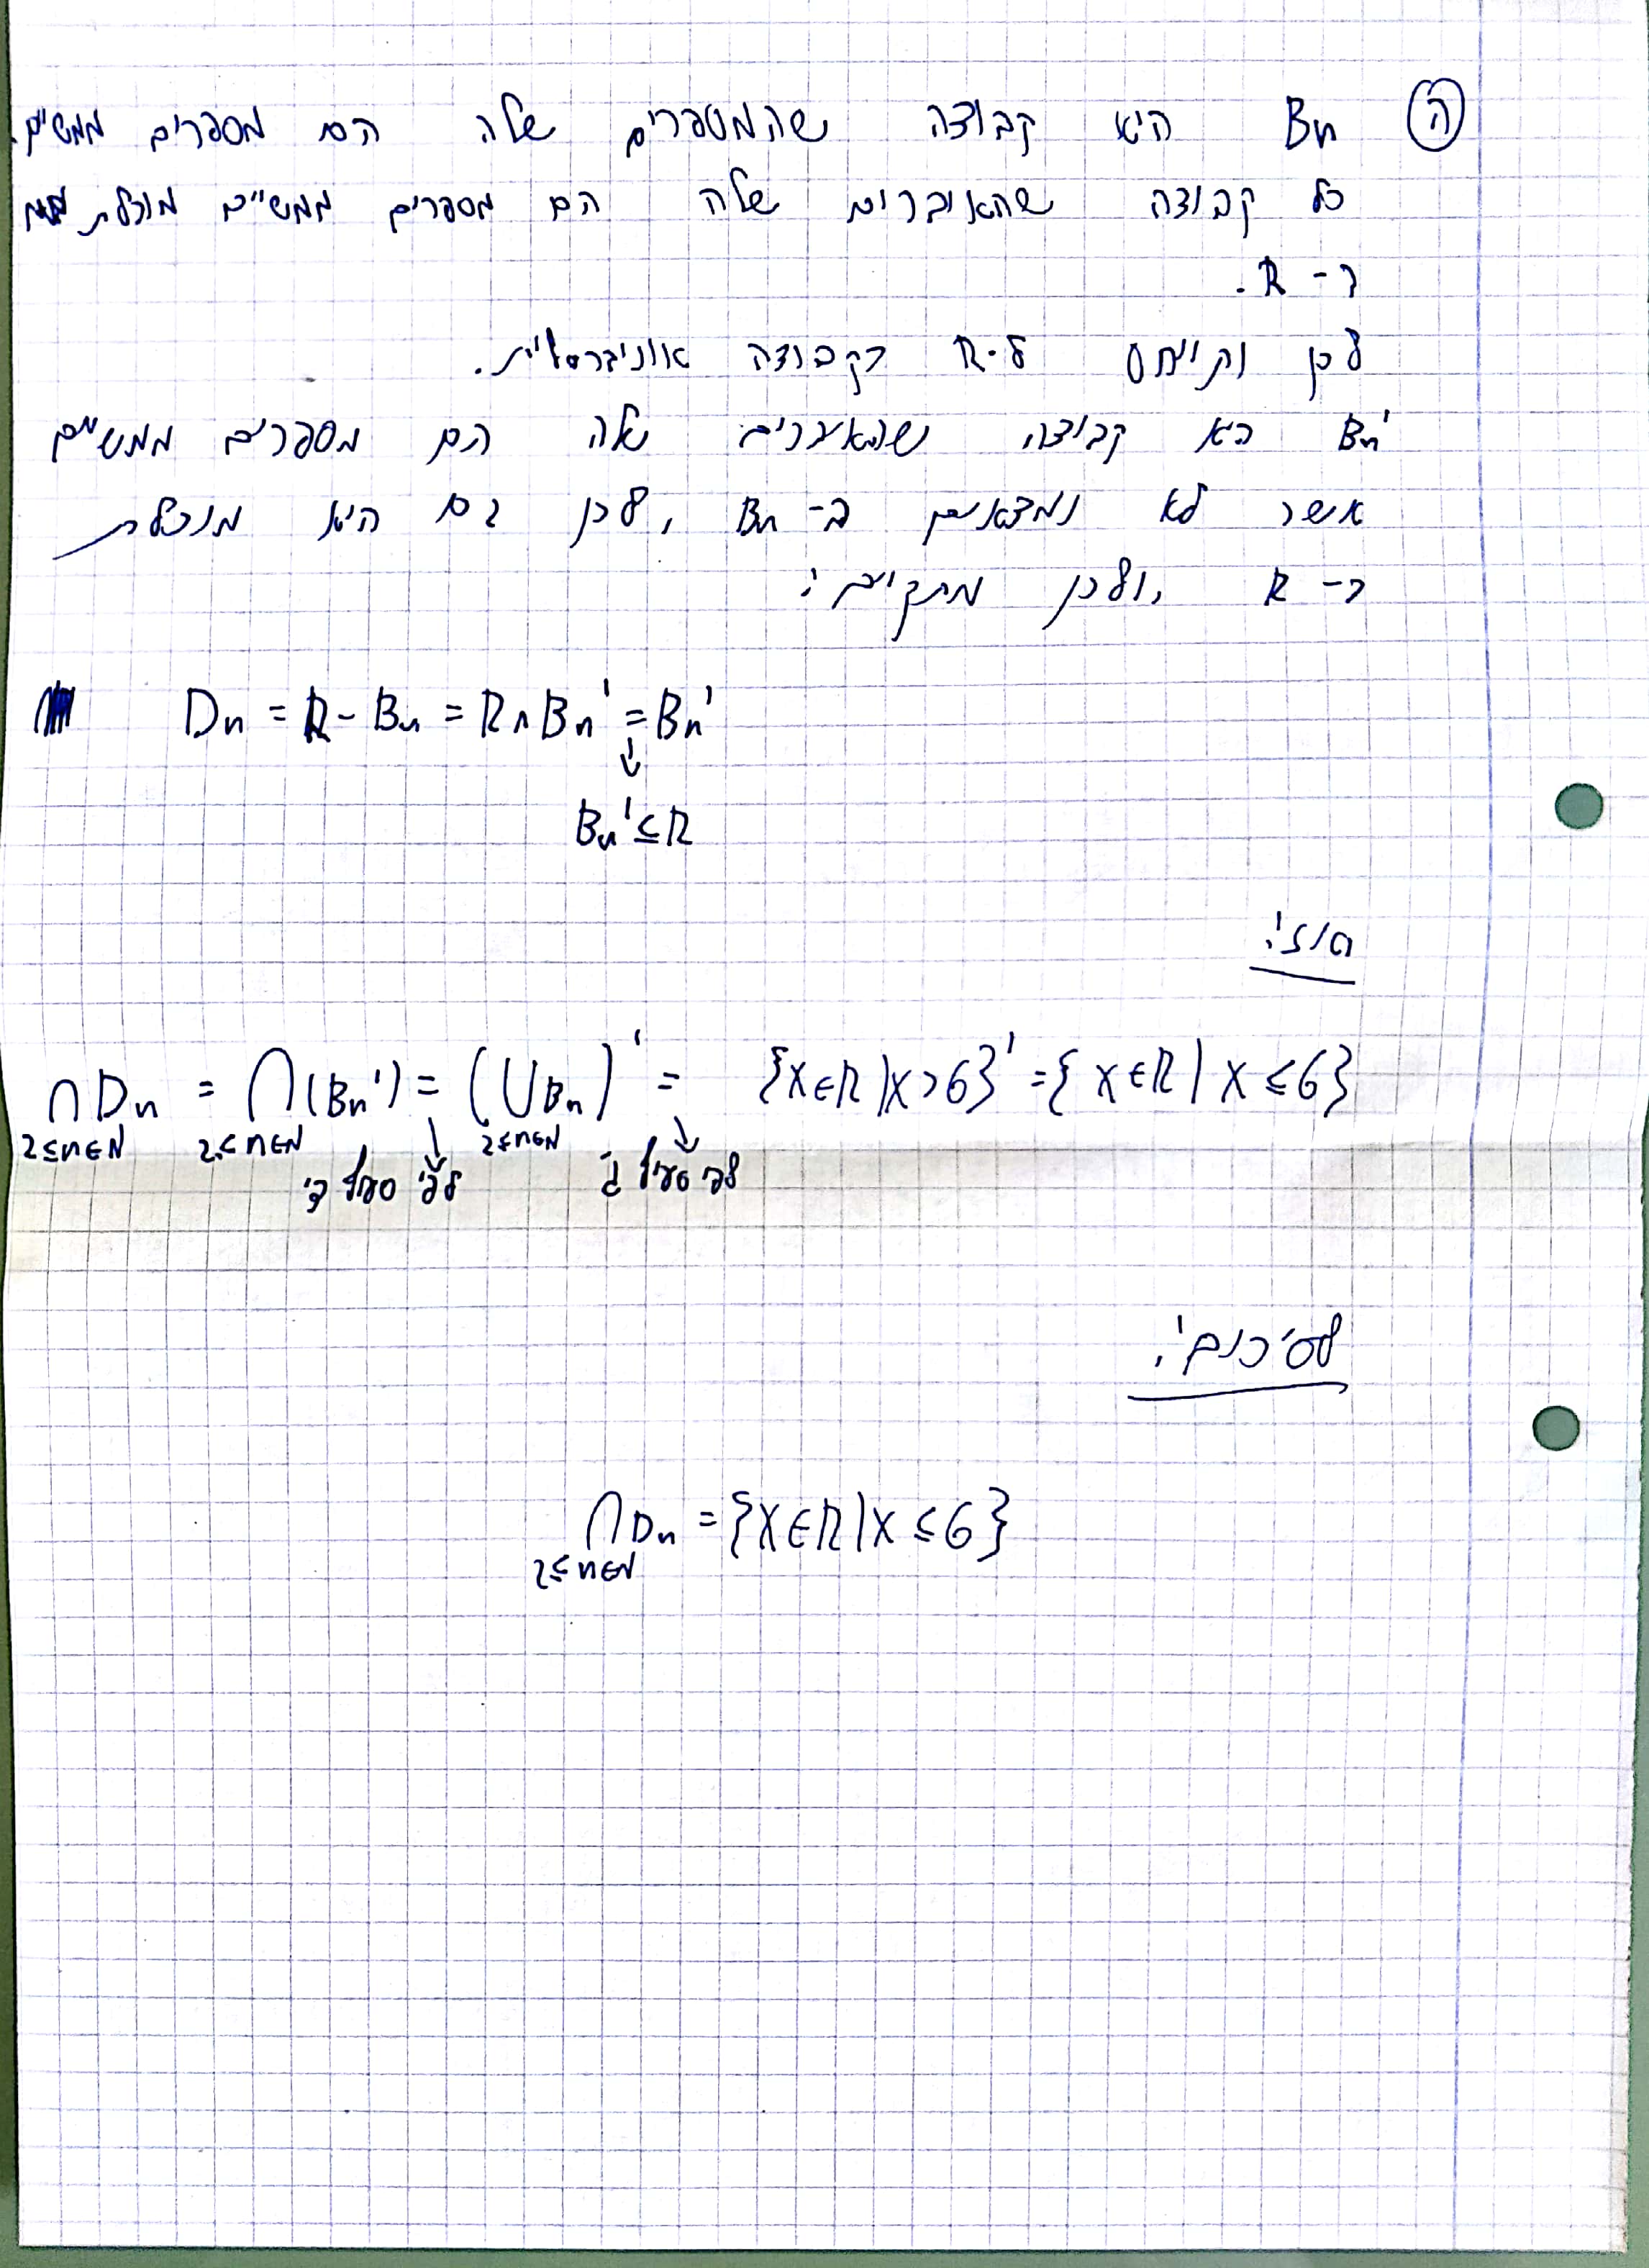 ה Bn היא קבוצה שהמספרים שלה הם מספרים ממשיים.
כל קבוצה שהאוברים שלה הם מספרים ממשיים מוכלת
ב- R.
לכן נתייחס ל-R כקבוצה אוניברסלית.
Bn' היא קבוצה שהאיברים שלה הם מספרים ממשיים
אשר לא נמצאים ב- Bn, לכן גם היא מוכלת
ב- R, ולכן מתקיים:
Dn = R - Bn = R ∩ Bn' = Bn'
↓
Bn' ⊆ R
אזי:
∩Dn = ∩(Bn') = (∪Bn)' = {x∈R | x > 6}' = {x∈R | x ≤ 6}
2≤n∈N 2≤n∈N 2≤n∈N
לפי סעיף ד' לפי סעיף ג
לסיכום:
∩Dn = {x∈R | x ≤ 6}
2≤n∈N